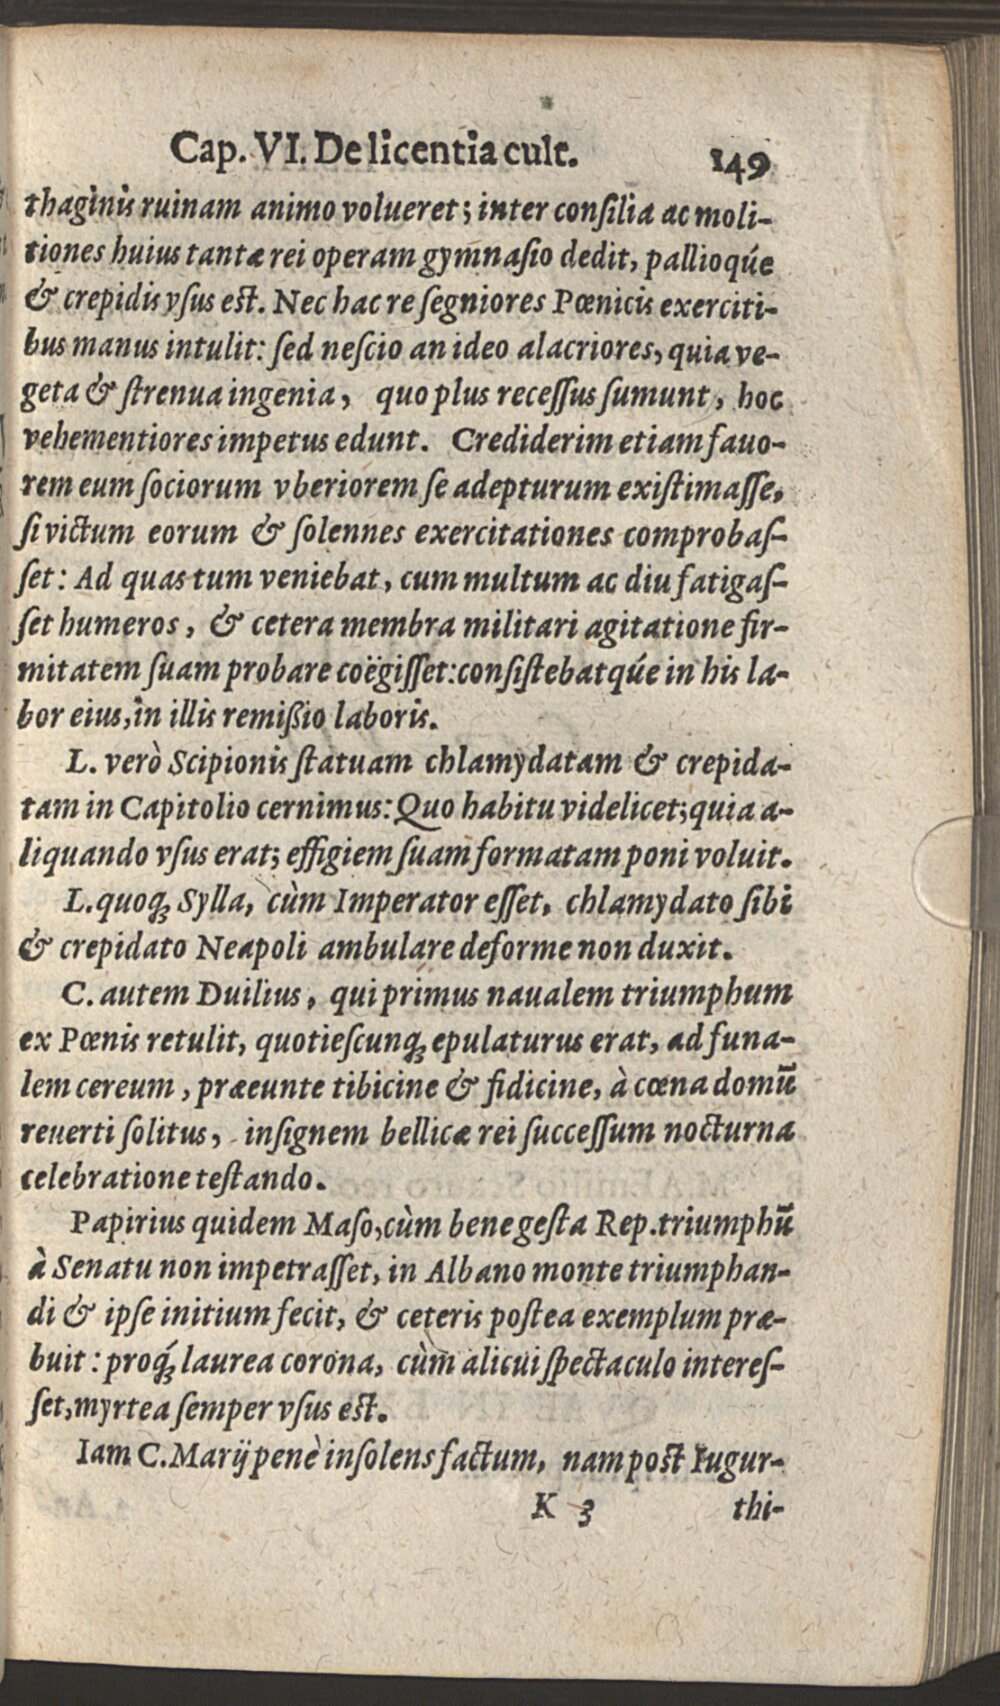 Cap. VI. De licentia cult. 149
thaginis ruinam animo volueret; inter conſilia ac moli-
tiones huius tantæ rei operam gymnaſio dedit, pallioqúe
& crepidis vſus eſt. Nec hac re ſegniores Pœnicis exerciti-
bus manus intulit: ſed neſcio an ideo alacriores, quia ve-
geta & ſtrenua ingenia, quo plus receſſus ſumunt, hoc
vehementiores impetus edunt. Crediderim etiam fauo-
rem eum ſociorum vberiorem ſe adepturum exiſtimaſſe,
ſi victum eorum & ſolennes exercitationes comprobaſ-
ſet: Ad quas tum veniebat, cum multum ac diu fatigaſ-
ſet humeros, & cetera membra militari agitatione fir-
mitatem ſuam probare coëgiſſet: conſiſtebatqúe in his la-
bor eius, in illis remißio laboris.
L. verò Scipionis ſtatuam chlamydatam & crepida-
tam in Capitolio cernimus: Quo habitu videlicet; quia a-
liquando vſus erat; effigiem ſuam formatam poni voluit.
L. quoq́; Sylla, cùm Imperator eſſet, chlamydato ſibi
& crepidato Neapoli ambulare deforme non duxit.
C. autem Duilius, qui primus naualem triumphum
ex Pœnis retulit, quotieſcunq; epulaturus erat, ad funa-
lem cereum, præeunte tibicine & fidicine, à cœna domū
reuerti ſolitus, inſignem bellicæ rei ſucceſſum nocturna
celebratione teſtando.
Papirius quidem Maſo, cùm bene geſta Rep. triumphū
à Senatu non impetraſſet, in Albano monte triumphan-
di & ipſe initium fecit, & ceteris poſtea exemplum præ-
buit: proq́; laurea corona, cùm alicui ſpectaculo intereſ-
ſet, myrtea ſemper vſus eſt.
Iam C. Marij penè inſolens factum, nam poſt Iugur-
K 3 thi-